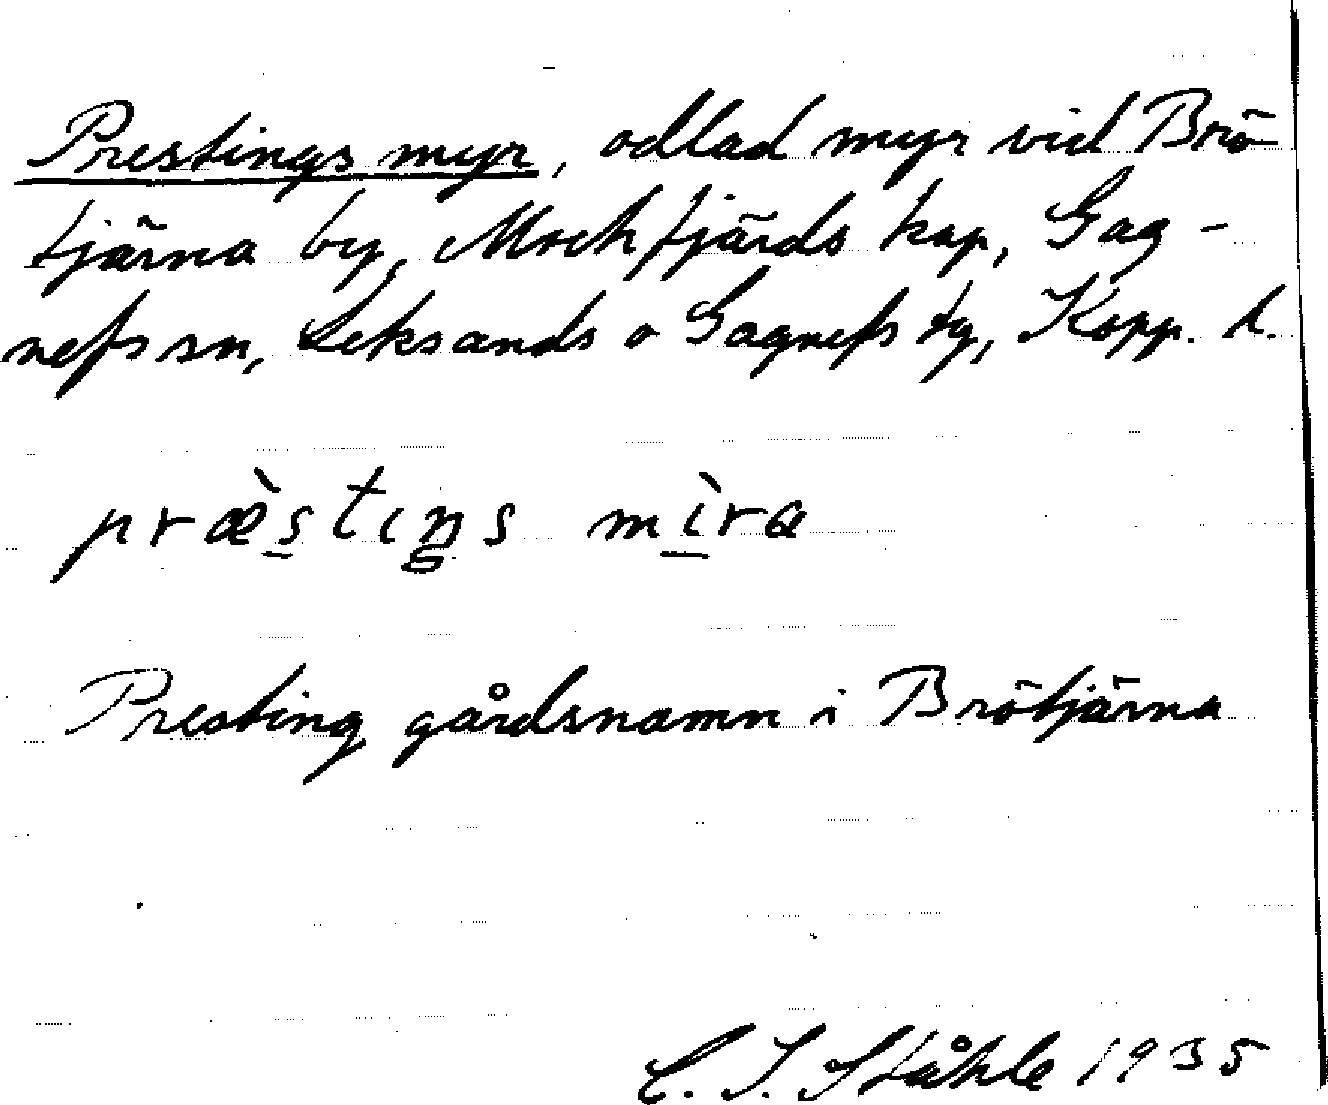 Prestings myr, odlad myr vid Brö
tjärna by, Mockfjärds kap, Gag-
nefs sn, Leksands o Gagnefs tg, Kopp. l.
præ̀stıŋs mìra
Presting gårdsnamn i Brötjärna
C. I. Ståhle 1935